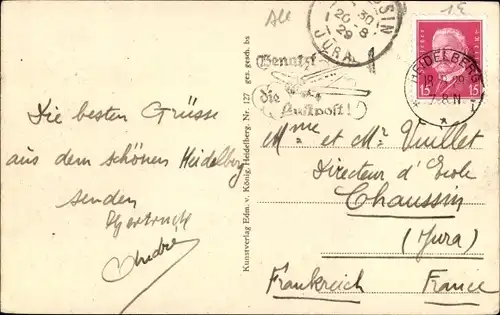 Die besten Grüsse
aus dem schönen Heidelberg
senden
Gertrud
André
Kunstverlag Edm. v. König, Heidelberg. Nr. 127 ges. gesch. bs
30
20-8
29
JURA
Benutzt
die
Luftpost!
HEIDELBERG
15 15
Mme et Mr Vuillet
Directeur d'Ecole
Chaussin
(Jura)
Frankreich France